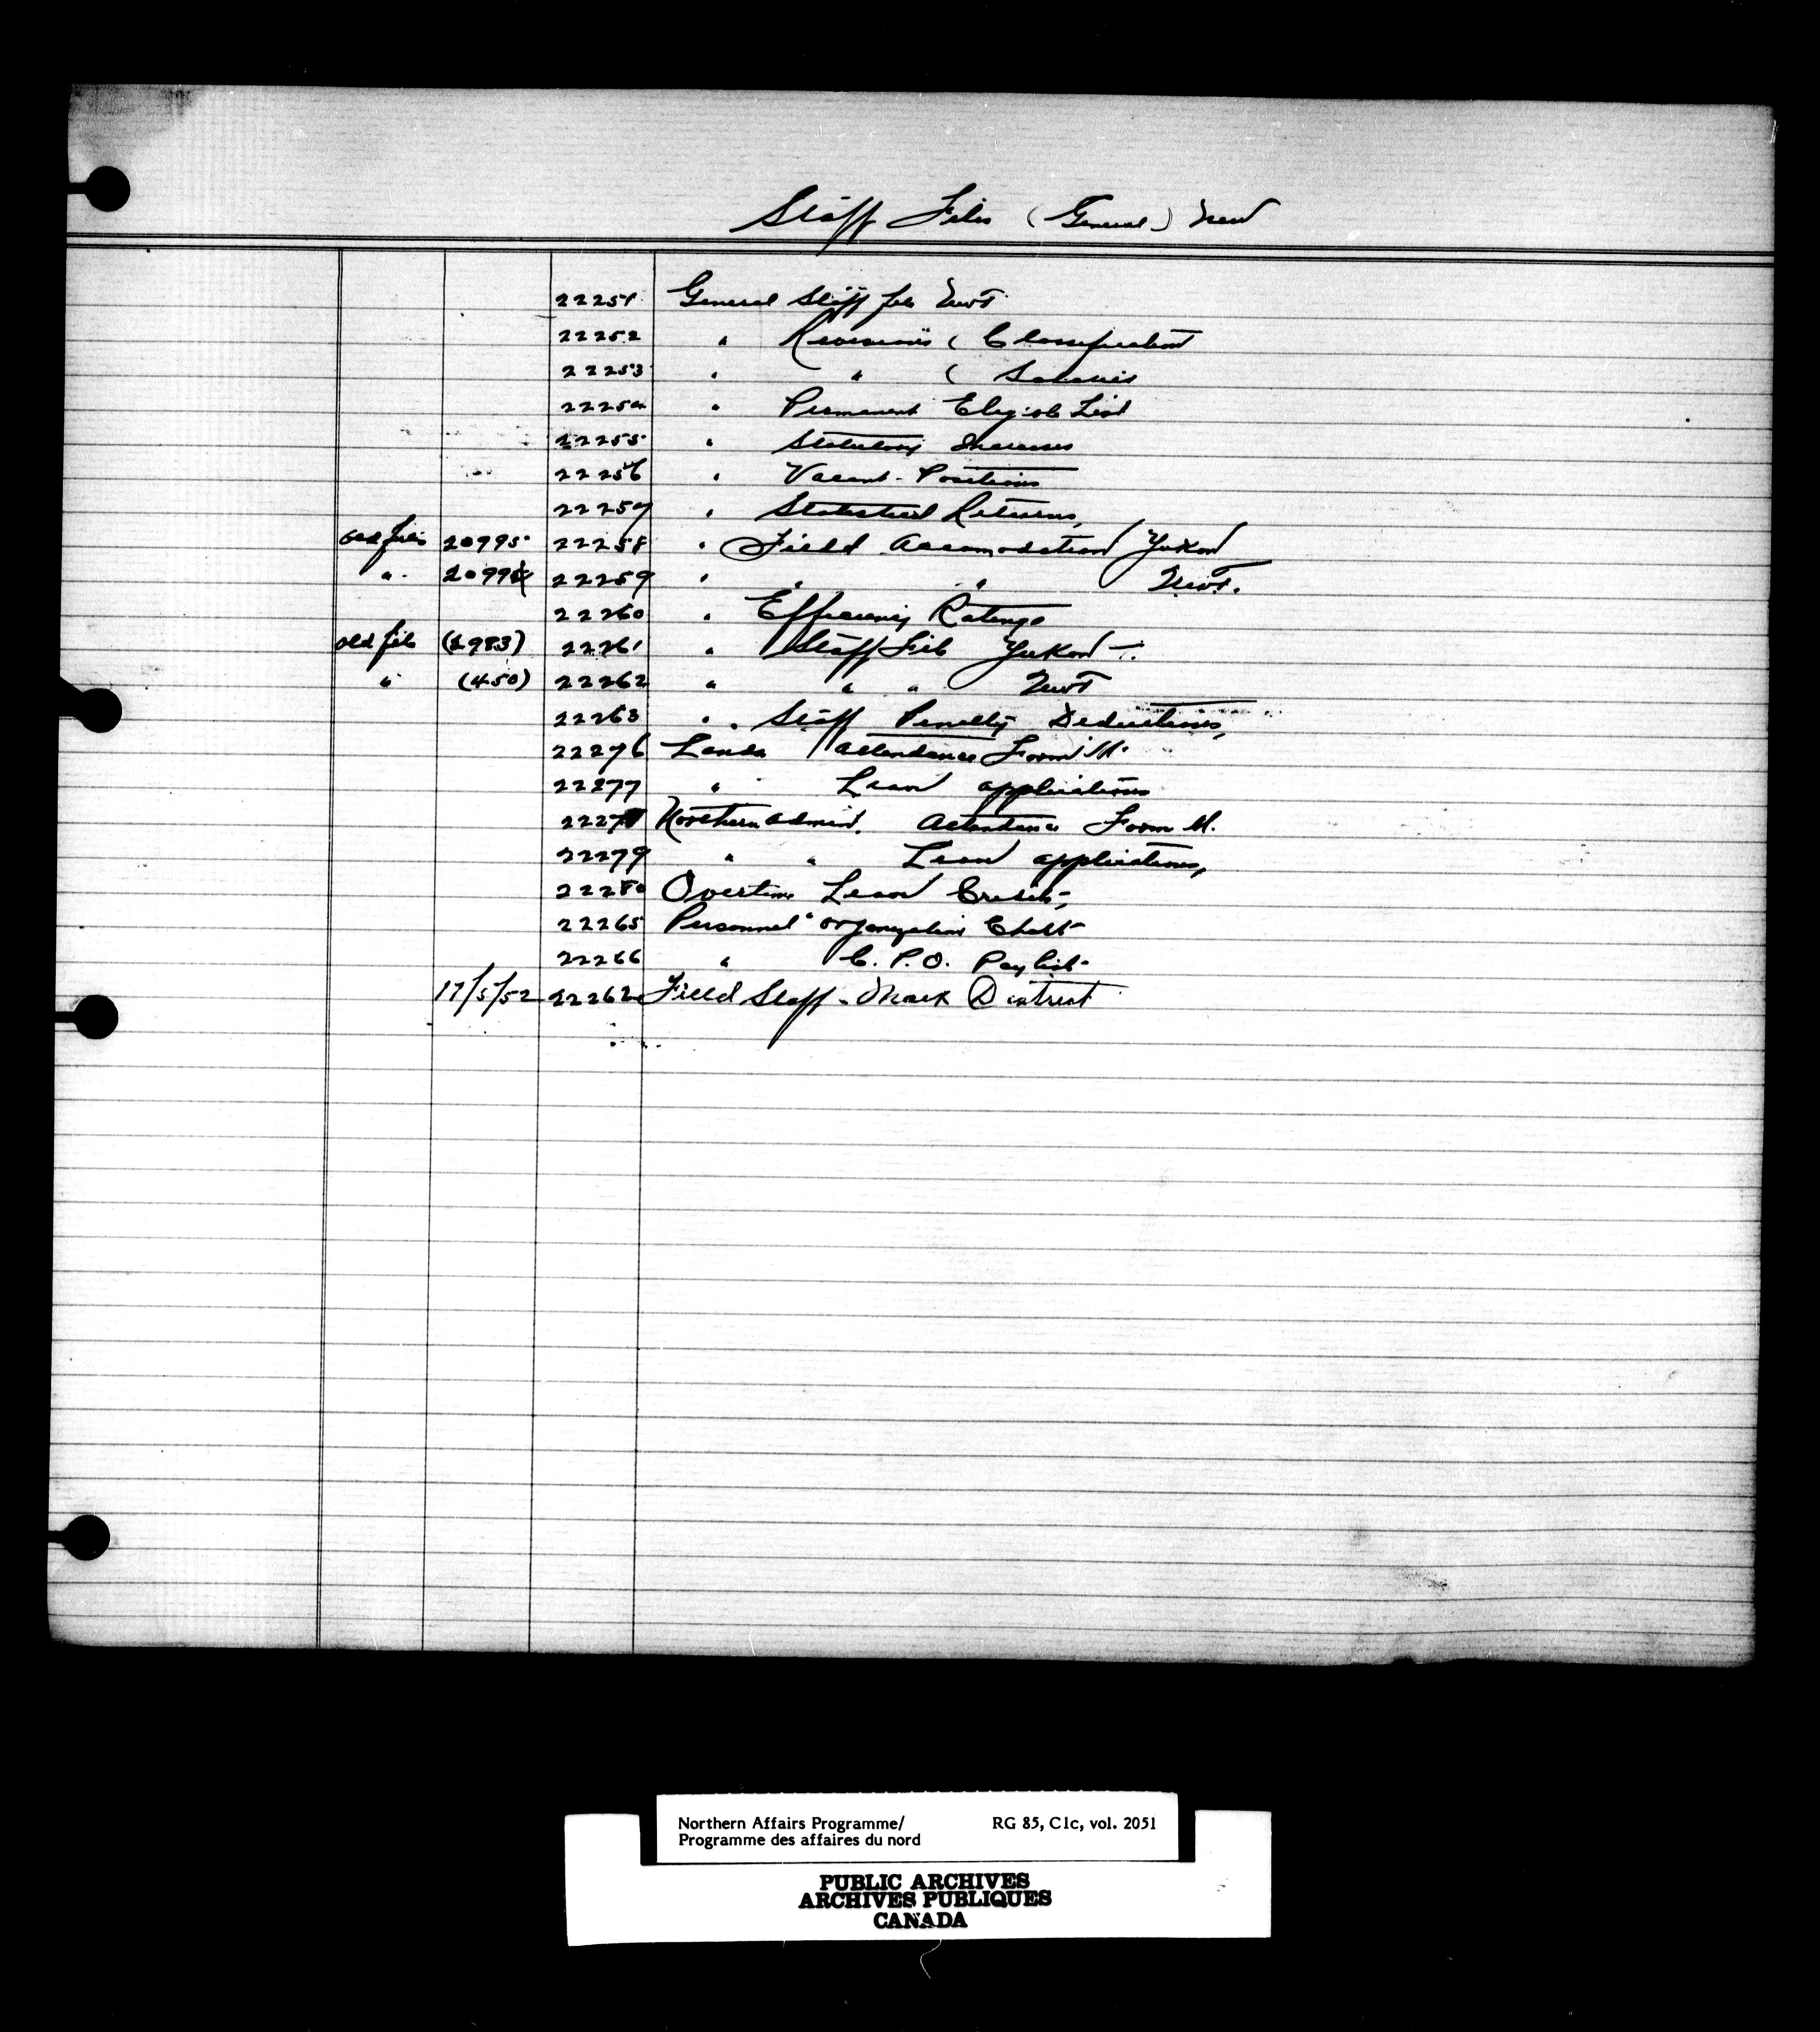 Staff Files (General) New
22251 General Staff file NWT
22252 " Revisions ( Classification
22253 " " ( Salaries
22254 " Permanent Eligible List
22255 " Statutory Increases
22256 " Vacant Positions
22257 " Statistical Returns,
old files 20995 22258 " Field Accomodation Yukon
" 22259 " " " NWT.
22260 " Efficiency Ratings
old file 22261 " Staff File Yukon T.
" (450) 22262 " " " NWT
22263 " Staff Penalty Deductions,
22276 Lands Attendance Form M.
22277 " Leave applications
Northern Admin. Attendance Form M.
22279 " " Leave applications,
22280 Overtime Leave Credits,
22265 Personnel Organization Chart
22266 " C.P.O. Paylist
17/5/52 22262 Field Staff - Mack District
Northern Affairs Programme/ RG 85, C1c, vol. 2051
Programme des affaires du nord
PUBLIC ARCHIVES
ARCHIVES PUBLIQUES
CANADA